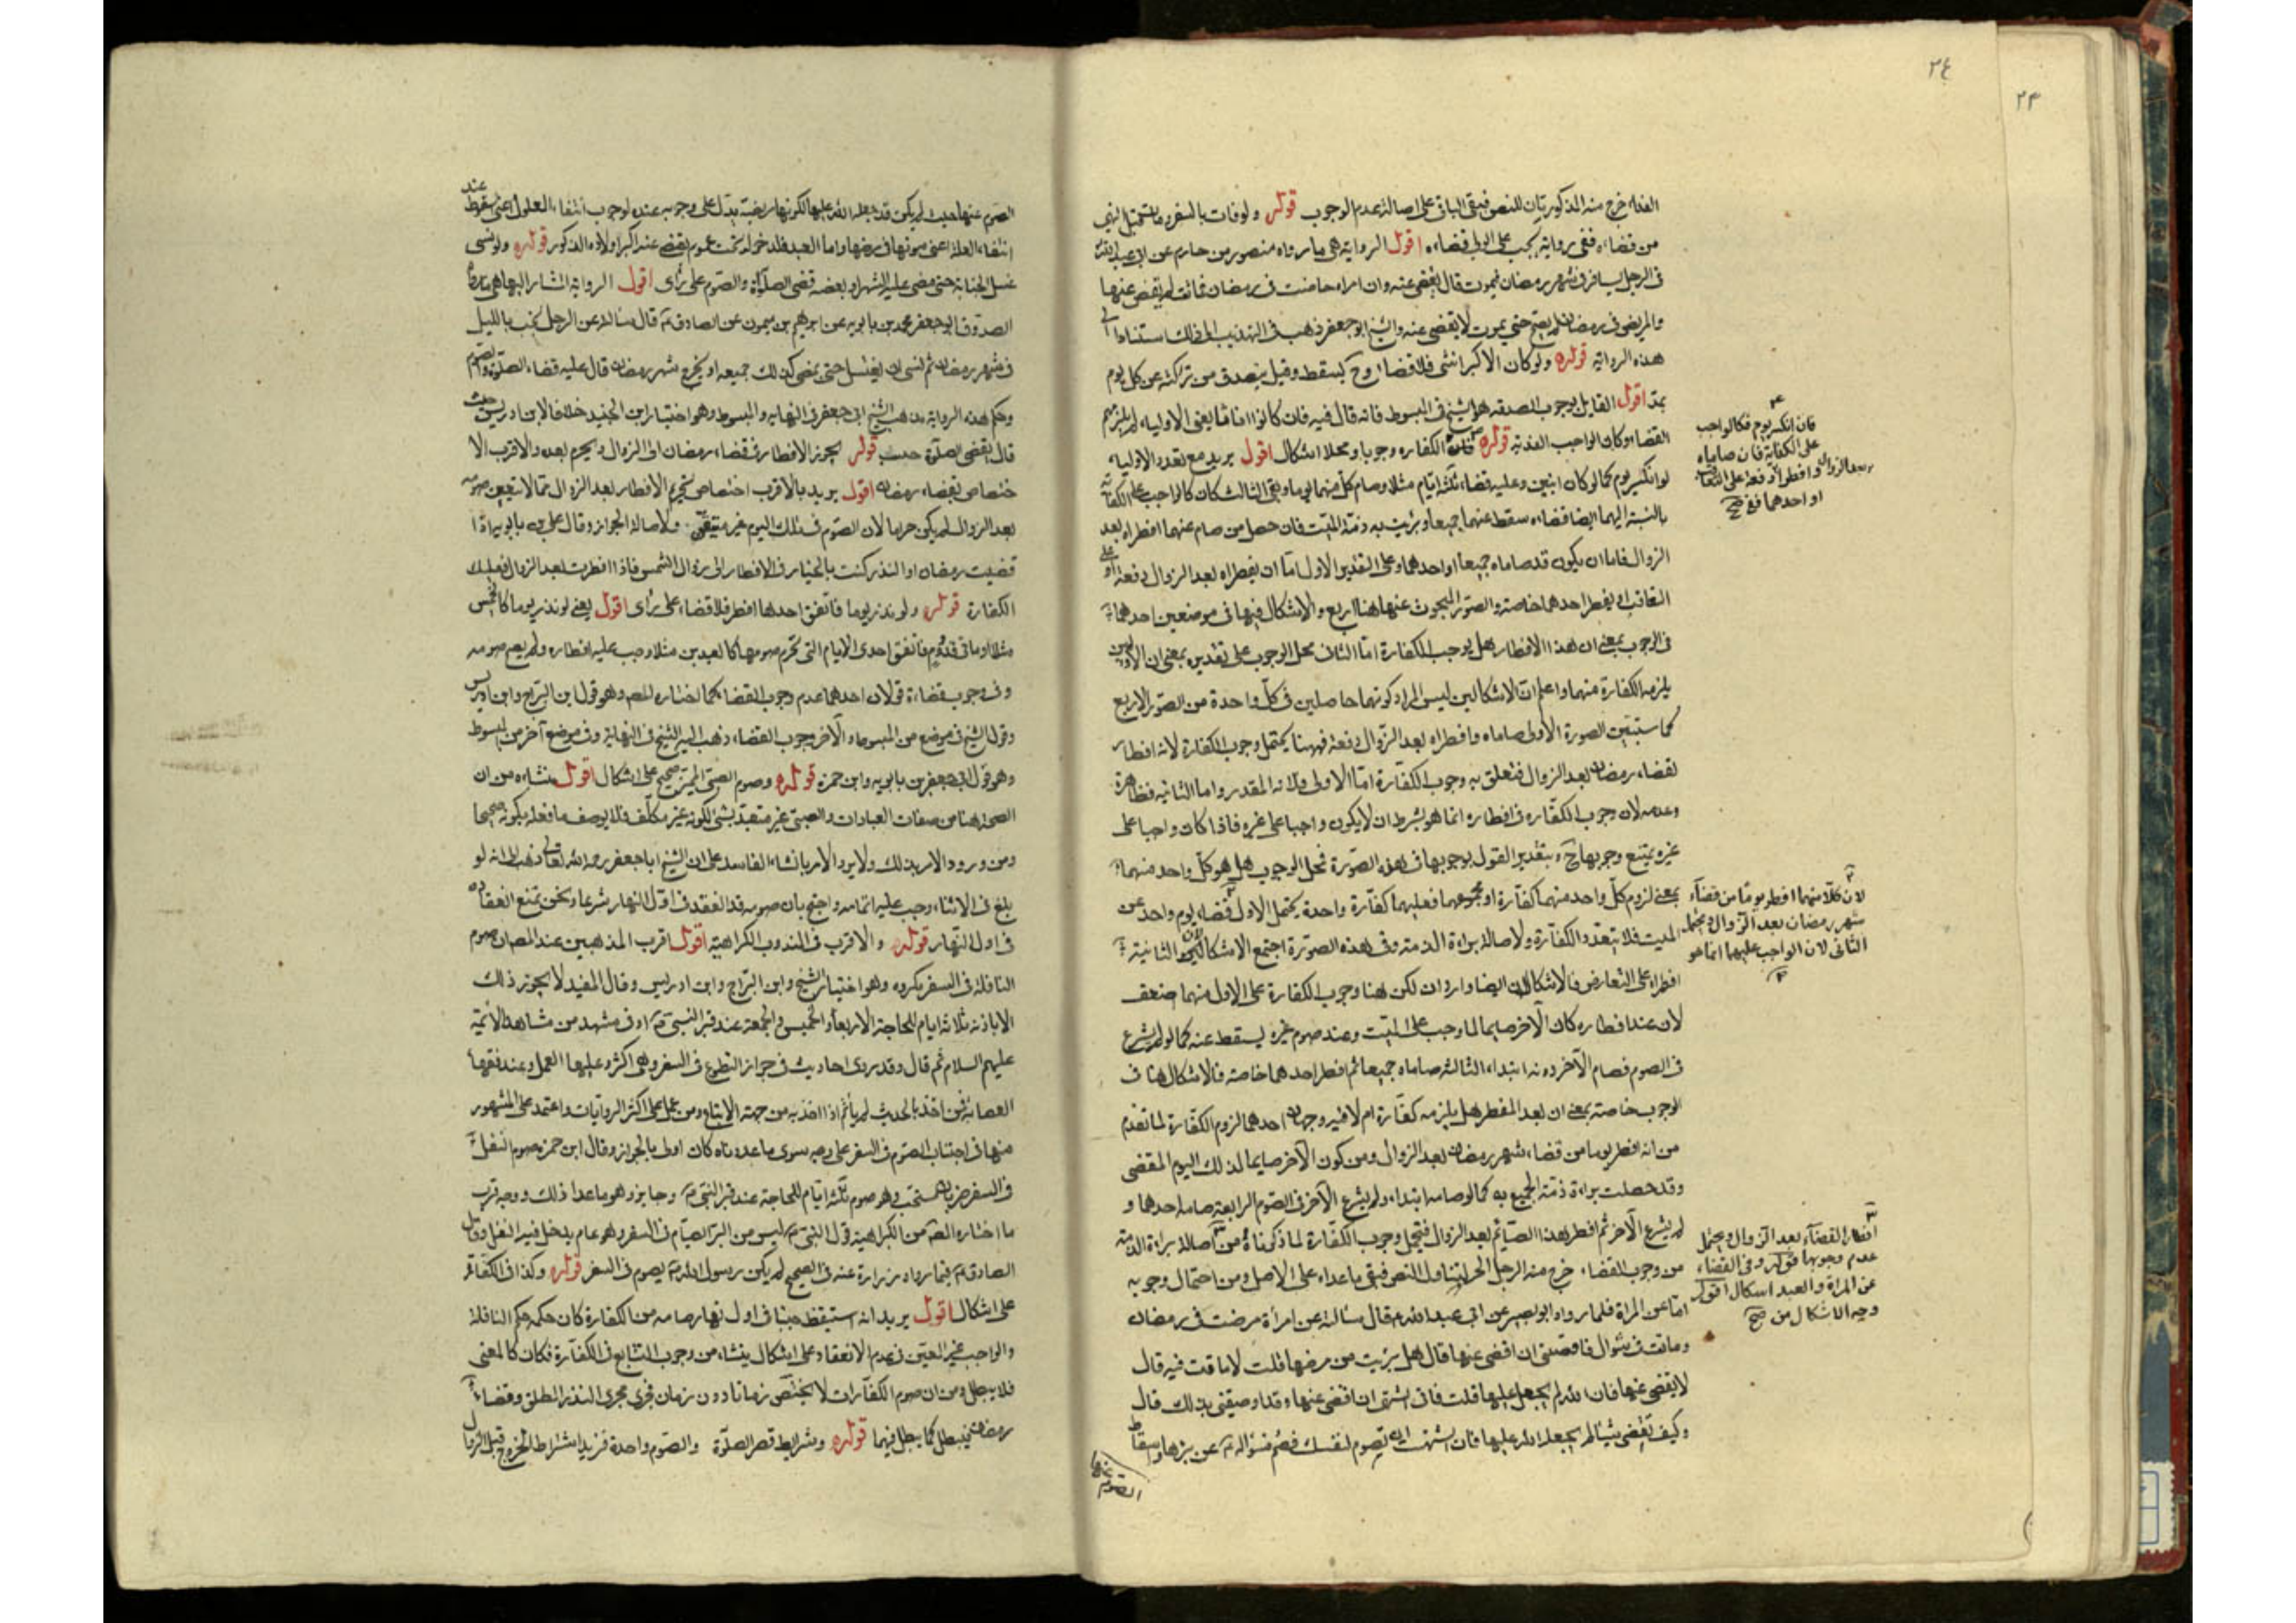 ٢٤
٢٤
الفعله خرج منه المذكورتان للنص فيبقى الباقي على اصالة عدم الوجوب قوله ولو فات بالسفر ولم يتمكن
من قضائه ففي رواية يجب على الولي قضاءه اقول الرواية هي ما رواه منصور بن حازم عن ابي عبد الله
في الرجل يسافر في شهر رمضان فيموت قال يقضى عنه وان امراة حاضت في رمضان فماتت لم يقض عنها
والمريض في رمضان لم يصح حتى يموت لا يقضى عنه والشيخ ابو جعفر ذهب في التهذيب الى ذلك استنادا الى
هذه الرواية قوله ولو كان الاكبر انثى فلا قضاء وح يسقط وقيل يتصدق من تركته عن كل يوم
بمد اقول القايل بوجوب الصدقة هو الشيخ في المبسوط فانه قال فيه فان كانوا اناثا يعني الاولياء لم يلزمهم
القضاء وكان الواجب الفدية قوله الكفارة وجوبا ومحلا اشكال اقول يريد مع تعدد الاولياء
لو انكسر يوم كما لو كان اثنين وعليه قضاء ثلثة ايام مثلا وصام كل منهما يوما وبقي الثالث كان كالواجب على الكفاية
بالنسبة اليهما ايضا قضاءه سقط عنهما جميعا وبرئت به ذمة الميت فان حصل من صام عنهما افطراه بعد
الزوال فاما ان يكون قد صاماه جميعا او احدهما وعلى التقدير الاول اما ان يفطراه بعد الزوال دفعة او على
التعاقب او يفطر احدهما خاصة والصور المبحوث عنها هنا اربع والاشكال فيها في موضعين احدهما
في الوجوب بمعنى ان هذا الافطار هل يوجب الكفارة اما الثاني محل الوجوب على تقديره بمعنى ان
يلزمه الكفارة منهما واعلم ان الاشكالين ليس المراد كونهما حاصلين في كل واحدة من الصور الاربع
كما ستبين الصورة الاولى صاماه وافطراه بعد الزوال دفعة فههنا يحتمل وجوب الكفارة لانه افطار
لقضاء رمضان بعد الزوال فتعلق به وجوب الكفارة اما الاولى فلانه المقدر واما الثانية فظاهرة
وعدمه لان وجوب الكفارة في افطاره انما هو بشرط ان لا يكون واجبا على غيره فاذا كان واجبا على
غيره يمتنع وجوبها ح وبتقدير القول بوجوبها في هذه الصورة فمحل الوجوب هل هو كل واحد منهما
بمعنى لزوم كل واحد منهما كفارة او مجموعهما فعليهما كفارة واحدة يحتمل الاول قضاء يوم واحد عن
الميت فلا يتعدد الكفارة ولاصالة براءة الذمة وفي هذه الصورة اجتمع الاشكالان الثانية
افطراه على التعارض فالاشكالان ايضا واردان لكن هنا وجوب الكفارة على الاول منهما ضعف
لان عند افطاره كان الآخر صايما لما وجب على الميت وعند صوم غيره يسقط عنه كما لو لم يشرع
في الصوم فصام الآخر دونه ابتداء الثالثة صاماه جميعا ثم افطر احدهما خاصة فالاشكال هنا في
الوجوب خاصة بمعنى ان بعد المفطر هل يلزمه كفارة ام لا فيه وجهان احدهما لزوم الكفارة لما تقدم
من انه افطر يوما من قضاء شهر رمضان بعد الزوال ومن كون الآخر صايما لذلك اليوم المقضى
وقد حصلت براءة ذمة الجميع به كما لو صامه ابتداء ولم يشرع الآخر في الصوم الرابعة صامه احدهما و
لم يشرع الآخر ثم افطر هذا الصايم بعد الزوال فيحتمل وجوب الكفارة لما ذكرناه ومن اصالة براءة الذمة
من وجوب القضاء خرج منه الرجل الحر لتناول النص فيبقى ما عداه على الاصل ومن احتمال وجوبه
اما عن المراة فلما رواه ابو بصير عن ابي عبد الله ع قال سالته عن امرأة مرضت في رمضان
وماتت في شوال فاوصتني ان اقضي عنها قال هل برئت من مرضها قلت لا ماتت فيه قال
لا يقضى عنها فان الله لم يجعل عليها قلت فاني اشتهي ان اقضي عنها وقد اوصتني بذلك قال
وكيف تقضي شيئا لم يجعله الله عليها فان اشتهيت ان تصوم لنفسك فصم فسؤاله ع عن برئها واسقاط
الصوم عنها
فان انكسر يوم فكالواجب
على الكفاية فان صاماه
وافطرا دفعة او على التعاقب
بعد الزوال
او احدهما ففي صح
لان كلا منهما افطر يوما من قضاء
شهر رمضان بعد الزوال ويحتمل
الثاني لان الواجب عليهما انما هو
افطار القضاء بعد الزوال ويحتمل
عدم وجوبها قوله وفي القضاء
عن المراة والعبد اشكال اقول
وجه الاشكال من صح
الصوم عنها حيث لم يكن قد جعله الله عليها لكونها مريضة يدل على وجوبه عنده لوجوب انتفاء المعلول اعني سقوط عند
انتفاء العلة اعني موتها في مرضها واما العبد فلدخوله تحت عموم يقضى عنه اكبر اولاده الذكور قوله ولو نسي
غسل الجنابة حتى مضى عليه الشهر او بعضه قضى الصلاة والصوم على راى اقول الرواية المشار اليها هي ما رواه
الصدوق ابو جعفر محمد بن بابويه عن ابرهيم بن ميمون عن الصادق ع قال سالته عن الرجل يجنب بالليل
في شهر رمضان ثم نسي ان يغتسل حتى يمضي كذلك جميعه او يخرج شهر رمضان قال عليه قضاء الصلوة والصوم
وحكم هذه الرواية مذهب الشيخ ابي جعفر في النهاية والمبسوط وهو اختيار ابن الجنيد خلافا لابن ادريس حيث
قال يقضي الصلوة حسب قوله يجوز الافطار في قضاء رمضان الى الزوال ويحرم بعده والاقرب الا
ختصاص بقضاء رمضان اقول يريد بالاقرب اختصاص تحريم الافطار بعد الزوال مما لا يتعين صومه
بعد الزوال لم يكن حراما لان الصوم في ذلك اليوم غير متيقن ولاصالة الجواز وقال علي بن بابويه اذا
قضيت رمضان او النذر كنت بالخيار في الافطار الى زوال الشمس فاذا افطرت بعد الزوال فعليك
الكفارة قوله ولو نذر يوما فاتفق احدها افطر فلا قضاء على راى اقول يعني لو نذر يوما كالخميس
مثلا او ما في قدوم فاتفق احدى الايام التي يحرم صومها كالعيدين مثلا وجب عليه افطاره ولم يصم صومه
وفي وجوب قضاءه قولان احدهما عدم وجوب القضاء كما اختاره المص وهو قول ابن البراج وابن ادريس
وقول الشيخ في موضع من المبسوط والآخر وجوب القضاء ذهب اليه الشيخ في النهاية وفي موضع آخر من المبسوط
وهو قول ابي جعفر بن بابويه وابن حمزة قوله وصوم الصبي المميز صحيح على اشكال اقول منشاءه من ان
الصحة هنا من صفات العبادات والصبي غير متعبد بشيء لكونه غير مكلف فلا يوصف ما فعله بكونه صحيحا
ومن ورود الامر بذلك ولا يرد الامر بانشاء الفاسد على ان الشيخ ابا جعفر رحمه الله تعالى ذهب الى انه لو
بلغ في الاثناء وجب عليه اتمامه واحتج بان صومه قد انعقد في اول النهار شرعا ونحن نمنع انعقاده
في اول النهار قوله والاقرب في المندوب الكراهية اقول اقرب المذهبين عند المص ان صوم
النافلة في السفر مكروه وهو اختيار الشيخ وابن البراج وابن ادريس وقال المفيد لا يجوز ذلك
الا باذنه ثلاثة ايام للحاجة الاربعاء والخميس والجمعة عند قبر النبي ص او في مشهد من مشاهد الائمة
عليهم السلام ثم قال وقد روى احاديث في جواز التطوع في السفر وهي اكثر وعليها العمل وعند فقهاء
العصابة فمن اخذ بالحديث لم يأثم اذا اخذ به من جهة الاتباع ومن عمل على اكثر الروايات واعتمد على المشهور
منها في اجتناب الصوم في السفر على وجه سوى ما عددناه كان اولى بالجواز وقال ابن حمزة صوم النفل
في السفر ضربان مستحب وهو صوم ثلثة ايام للحاجة عند قبر النبي ص وجايز وهو ما عدا ذلك ووجه قرب
ما اختاره المص من الكراهية قول النبي ص ليس من البر الصيام في السفر وهو عام يدخل فيه النفل وقول
الصادق ع فيما رواه زرارة عنه في الصحيح لم يكن رسول الله ص يصوم في السفر قوله وكذا في الكفارة
على اشكال اقول يريد انه استيقظ جنبا في اول نهار صامه من الكفارة كان حكمه حكم النافلة
والواجب غير المعين في عدم الانعقاد على اشكال ينشاء من وجوب التتابع في الكفارة فكان كالمعين
فلا يبطل ومن ان صوم الكفارات لا يختص زمانا دون زمان فجرى مجرى النذر المطلق وقضاء
رمضان فيبطل كما يبطل فيهما قوله وشرايط قصر الصلوة والصوم واحدة فيزيد اشتراط الخروج قبل الزوال